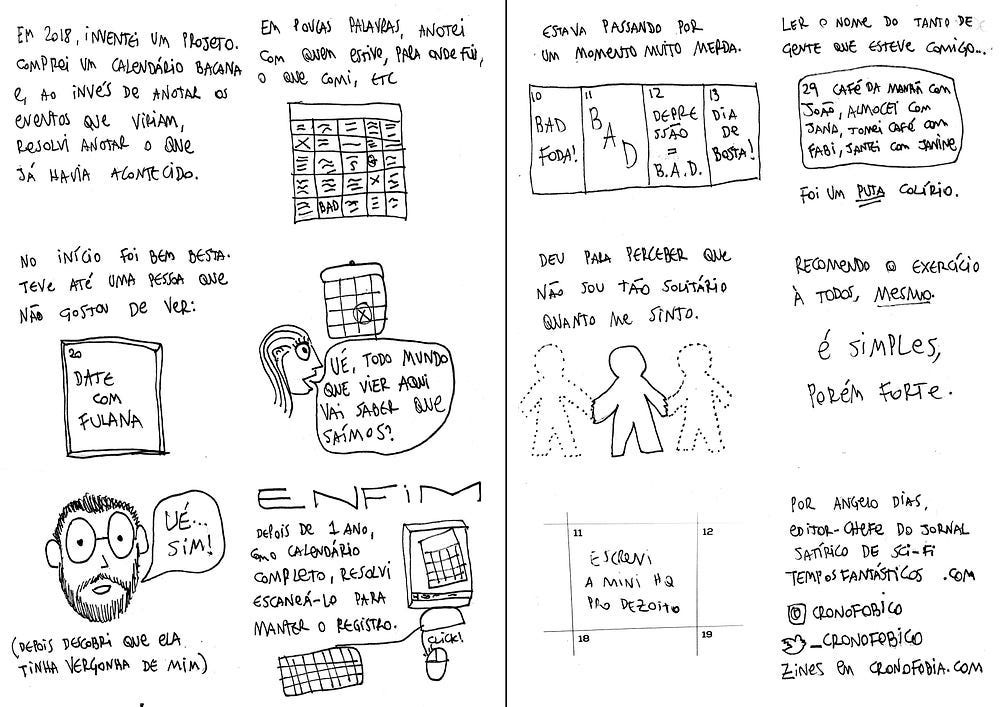 EM 2018, INVENTEI UM PROJETO.
COMPREI UM CALENDÁRIO BACANA
E, AO INVÉS DE ANOTAR OS
EVENTOS QUE VIRIAM,
RESOLVI ANOTAR O QUE
JÁ HAVIA ACONTECIDO.
EM POUCAS PALAVRAS, ANOTEI
COM QUEM ESTIVE, PARA ONDE FUI,
O QUE COMI, ETC
BAD
NO INÍCIO FOI BEM BESTA.
TEVE ATÉ UMA PESSOA QUE
NÃO GOSTOU DE VER:
20
DATE
COM
FULANA
UÉ, TODO MUNDO
QUE VIER AQUI
VAI SABER QUE
SAÍMOS?
UÉ...
SIM!
(DEPOIS DESCOBRI QUE ELA
TINHA VERGONHA DE MIM)
ENFIM
DEPOIS DE 1 ANO,
COM O CALENDÁRIO
COMPLETO, RESOLVI
ESCANEÁ-LO PARA
MANTER O REGISTRO.
CLICK!
ESTAVA PASSANDO POR
UM MOMENTO MUITO MERDA.
10
BAD
FODA!
11
BAD
12
DEPRE
SSÃO
=
B.A.D.
13
DIA
DE
BOSTA!
LER O NOME DO TANTO DE
GENTE QUE ESTEVE COMIGO...
29 CAFÉ DA MANHÃ COM
JOÃO, ALMOCEI COM
JANA, TOMEI CAFÉ COM
FABI, JANTEI COM JANINE
FOI UM PUTA COLÍRIO.
DEU PARA PERCEBER QUE
NÃO SOU TÃO SOLITÁRIO
QUANTO ME SINTO.
RECOMENDO O EXERCÍCIO
À TODOS, MESMO.
É SIMPLES,
PORÉM FORTE.
11
12
ESCREVI
A MINI HQ
PRO DEZOITO
18
19
POR ANGELO DIAS,
EDITOR-CHEFE DO JORNAL
SATÍRICO DE SCI-FI
TEMPOS FANTÁSTICOS .COM
CRONOFOBICO
_CRONOFOBICO
ZINES EM CRONOFOBIA.COM